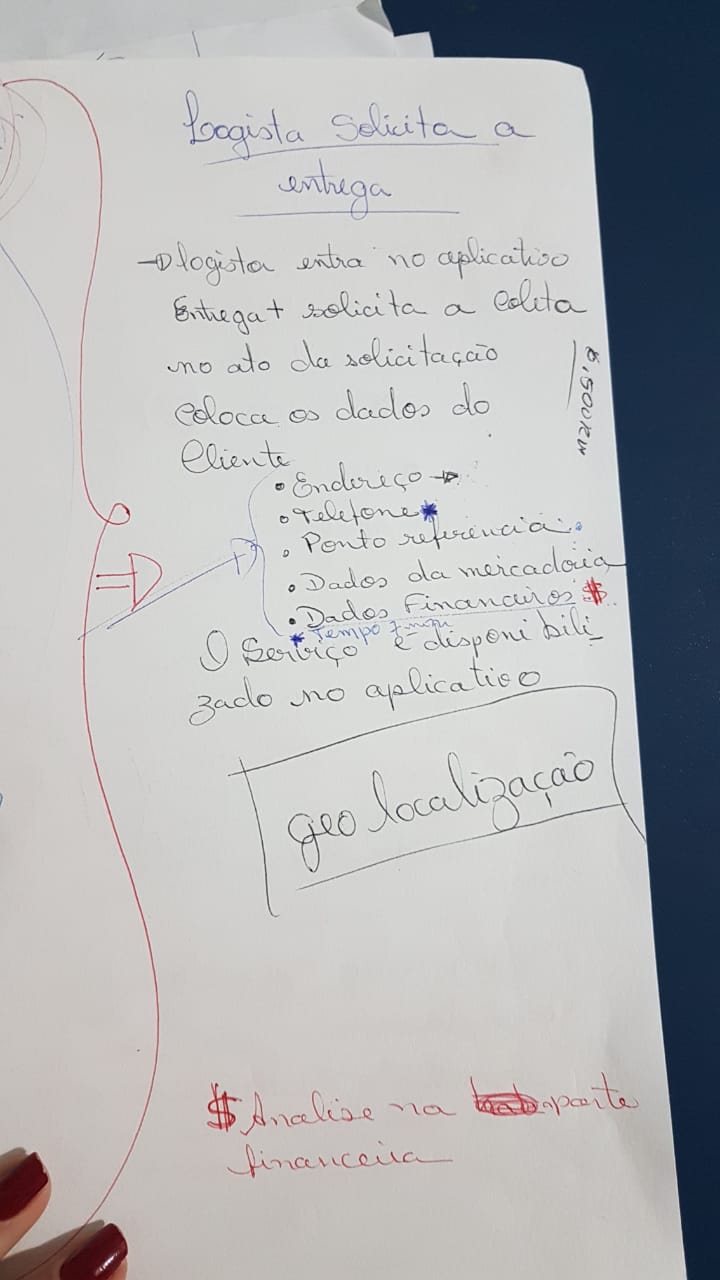 Logista Solicita a
entrega
logista entra no aplicativo
Entrega + solicita a coleta
no ato da solicitação
coloca os dados do
Cliente
• Endereço
• Telefone *
• Ponto referência.
• Dados da mercadoria
• Dados Financeiros $
* Tempo
O Serviço é disponibili
zado no aplicativo
geo localização
$ Analise na parte
financeira